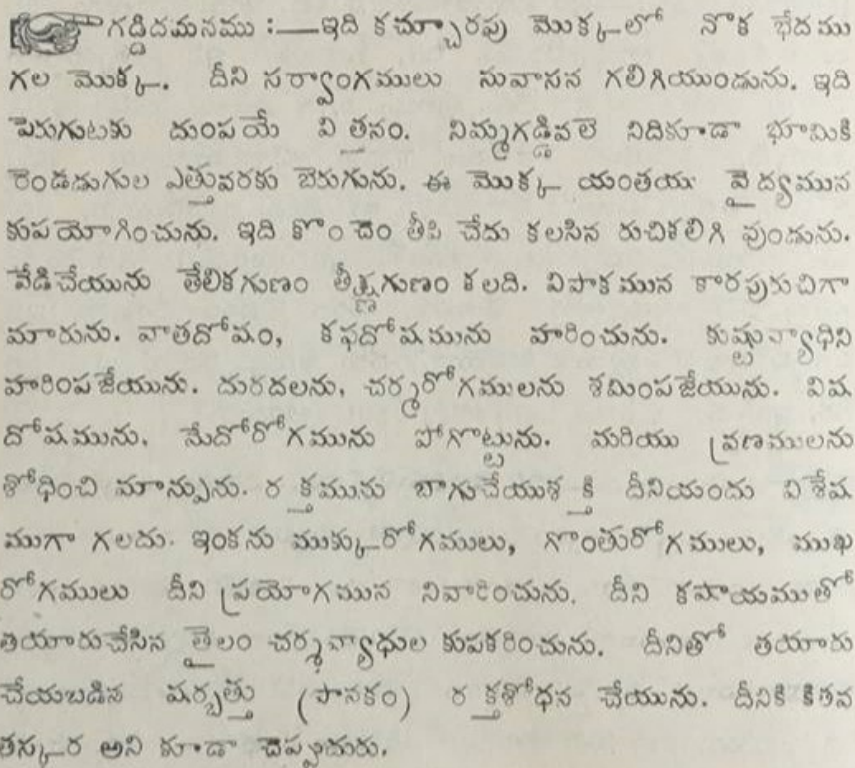 గడ్డిదమనము :—ఇది కచ్చూరపు మొక్కలో నొక భేదము
గల మొక్క. దీని సర్వాంగములు సువాసన గలిగియుండును. ఇది
పెరుగుటకు దుంపయే విత్తనం. నిమ్మగడ్డివలె నిదికూడా భూమికి
రెండడుగుల ఎత్తువరకు బెరుగును. ఈ మొక్క యంతయు వైద్యమున
కుపయోగించును. ఇది కొంచెం తీపి చేదు కలసిన రుచికలిగి వుండును.
వేడిచేయును తేలికగుణం తీక్ష్ణగుణం కలది. విపాకమున కారపురుచిగా
మారును. వాతదోషం, కఫదోషమును హరించును. కుష్టువ్యాధిని
హరింపజేయును. దురదలను, చర్మరోగములను శమింపజేయును. విష
దోషమును, మేదోరోగమును పోగొట్టును. మరియు వ్రణములను
శోధించి మాన్పును. రక్తమును బాగుచేయుశక్తి దీనియందు విశేష
ముగా గలదు. ఇంకను ముక్కురోగములు, గొంతురోగములు, ముఖ
రోగములు దీని ప్రయోగమున నివారించును. దీని కషాయముతో
తయారుచేసిన తైలం చర్మవ్యాధుల కుపకరించును. దీనితో తయారు
చేయబడిన షర్బత్తు (పానకం) రక్తశోధన చేయును. దీనికి కితవ
తస్కర అని కూడా చెప్పుదురు.